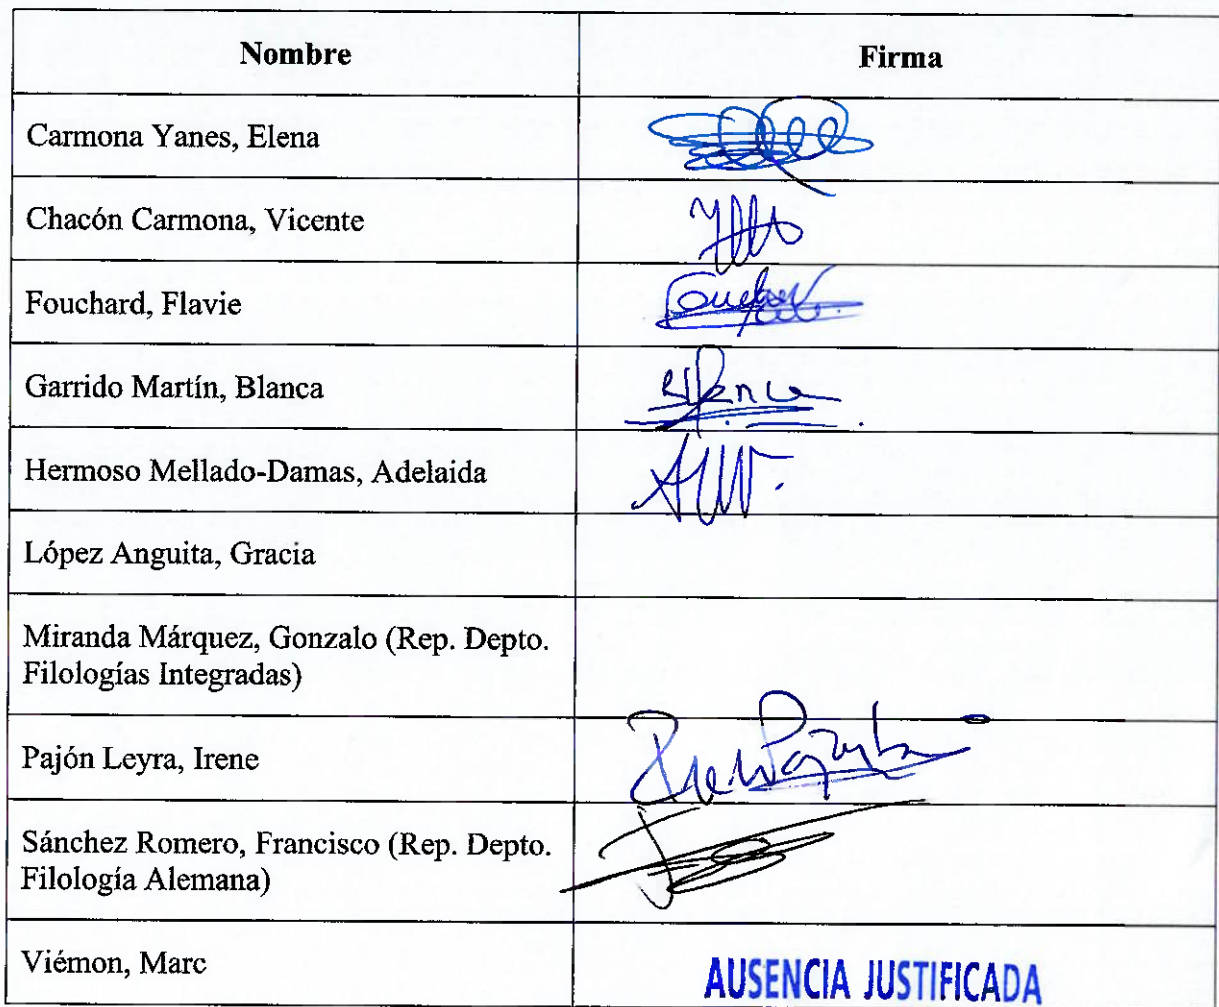 Nombre Firma
Carmona Yanes, Elena
Chacón Carmona, Vicente
Fouchard, Flavie
Garrido Martín, Blanca
Hermoso Mellado-Damas, Adelaida
López Anguita, Gracia
Miranda Márquez, Gonzalo (Rep. Depto.
Filologías Integradas)
Pajón Leyra, Irene
Sánchez Romero, Francisco (Rep. Depto.
Filología Alemana)
Viémon, Marc AUSENCIA JUSTIFICADA